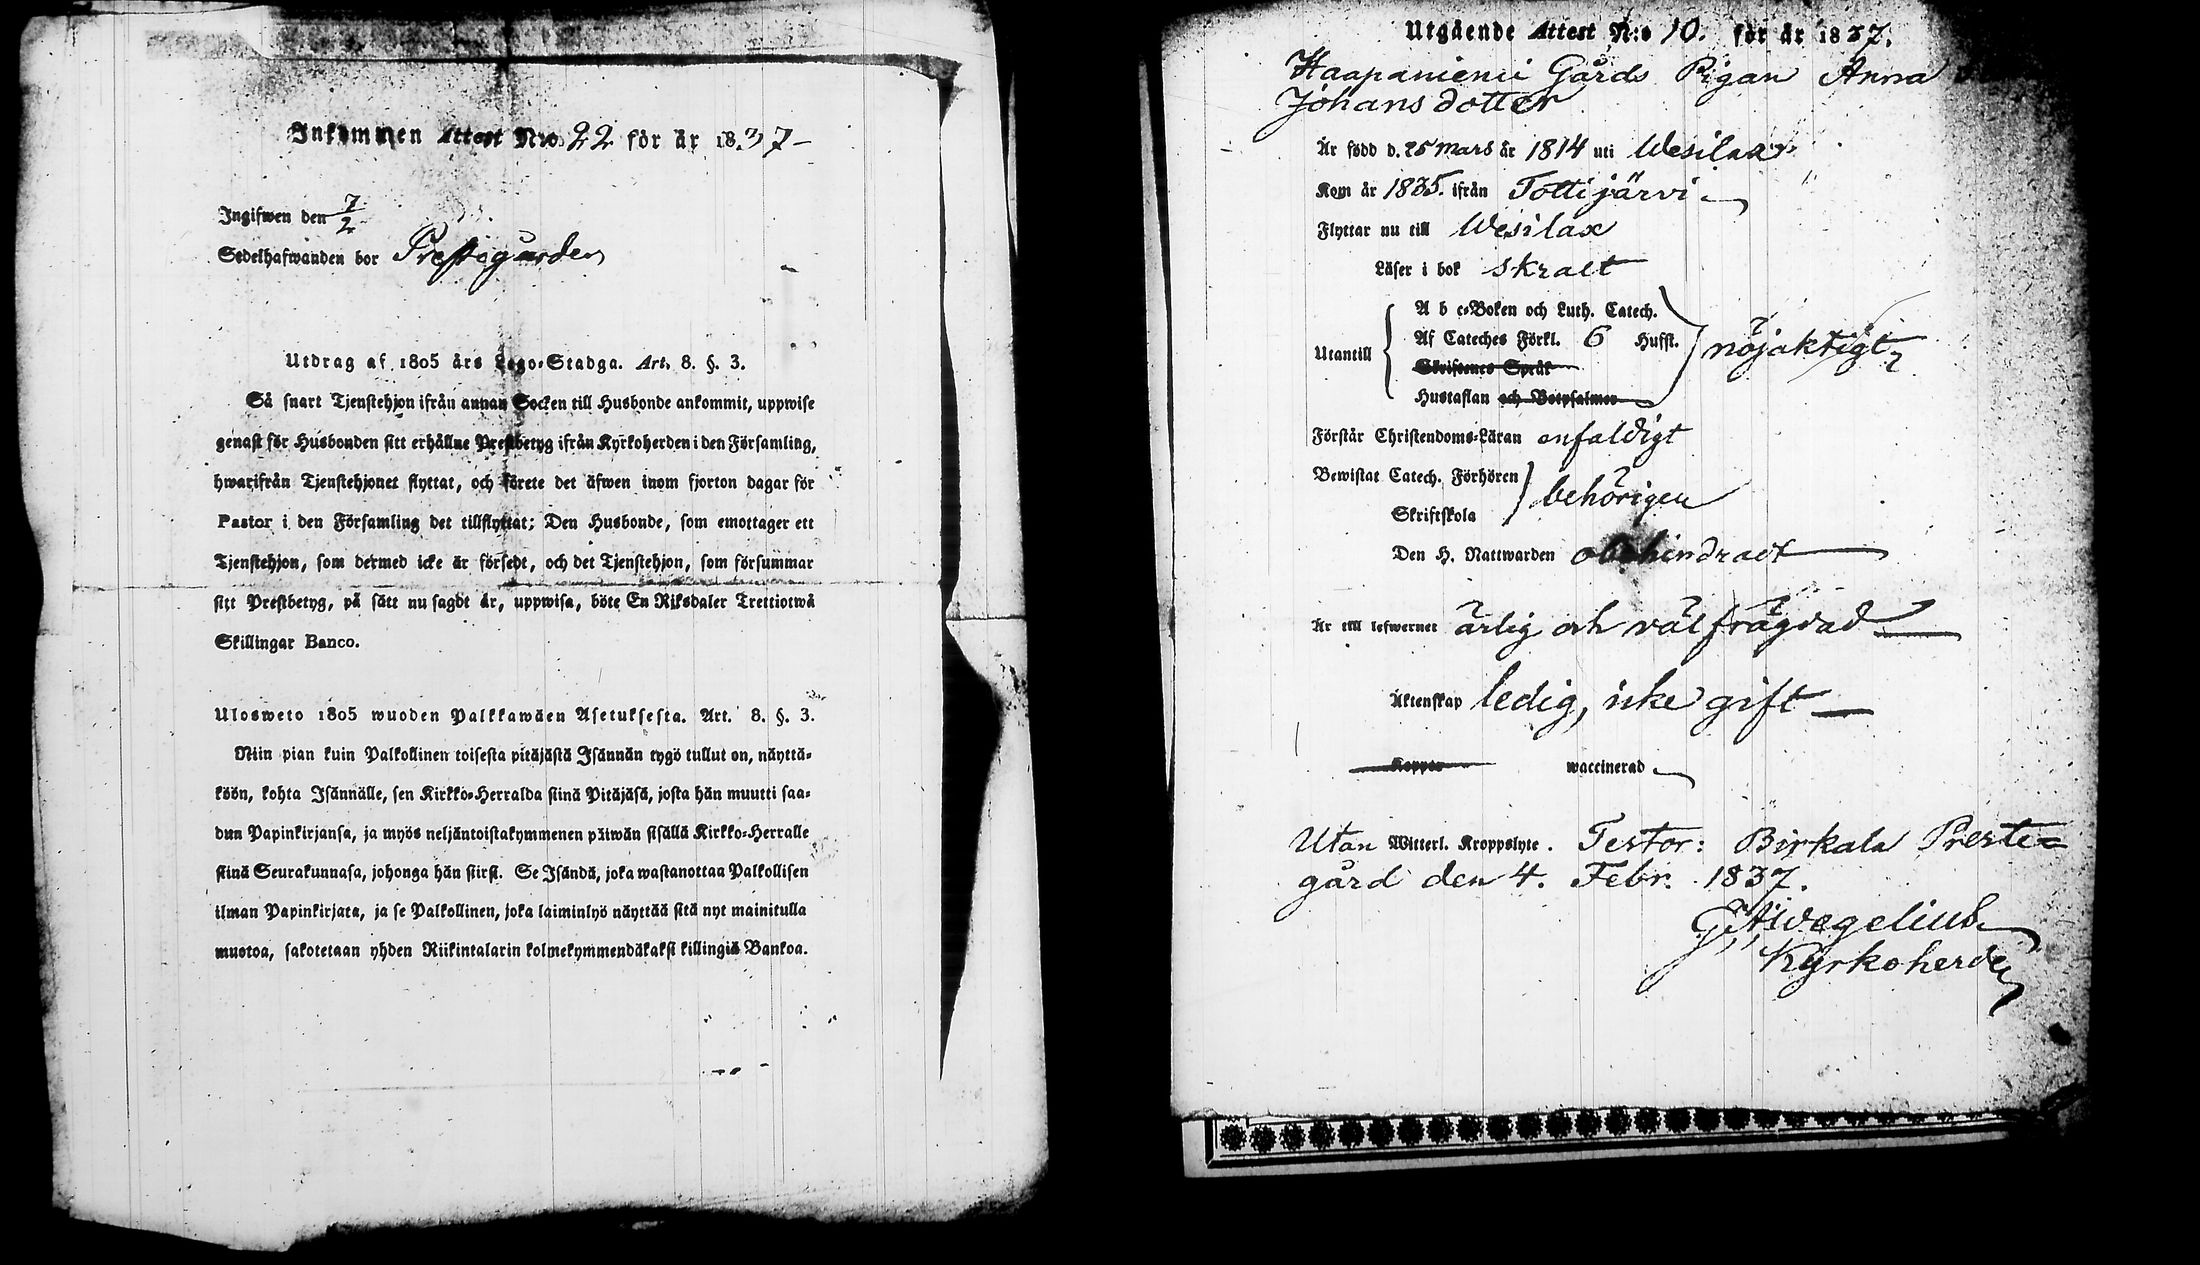 Inkommen Attest N:o 22 för år 1837-
Ingifwen den 7/2
Sedelhafwanden bor Prestegården
Utdrag af 1805 års Lego-Stadga. Art. 8. §. 3.
Så snart Tjenstehjon ifrån annan Socken till Husbonde ankommit, uppwise
genast för Husbonden sitt erhållne Prestbetyg ifrån Kyrkoherden i den Församling,
hwarifrån Tjenstehjonet flyttat, och förete det äfwen inom fjorton dagar för
Pastor i den Församling det tillflyttat; Den Husbonde, som emottager ett
Tjenstehjon, som dermed icke är försedt, och det Tjenstehjon, som försummar
sitt Prestbetyg, på sätt nu sagdt är, uppwisa, böte En Riksdaler Trettiotwå
Skillingar Banco.
Ulosweto 1805 wuoden Palkkawäen Asetuksesta. Art. 8. §. 3.
Niin pian kuin Palkollinen toisesta pitäjästä Isännän tygö tullut on, näyttä-
köön, kohta Isännälle, sen Kirkko-Herralda siinä Pitäjäsä, josta hän muutti saa-
dun Papinkirjansa, ja myös neljäntoistakymmenen päiwän sisällä Kirkko-Herralle
siinä Seurakunnasa, johonga hän siirsi. Se Isändä, joka wastanottaa Palkollisen
ilman Papinkirjata, ja se Palkollinen, joka laiminlyö näyttää sitä nyt mainitulla
muotoa, sakotetaan yhden Riikintalarin kolmekymmendäkaksi killingiä Bankoa.
Utgående Attest N:o 10. för år 1837.
Haapaniemi Gårds Pigan Anna
Johansdotter
Är född d. 25 mars år 1814 uti Wesilax
Kom år 1835. ifrån Tottijärvi
Flyttar nu till Wesilax
Läser i bok skralt
Utantill
A b c-Boken och Luth. Catech.
Af Cateches Förkl. 6 Hufst.
Skriftenes Språk
Hustaflan och Botpsalmer
nöjaktigt
Förstår Christendoms-Läran enfaldigt
Bewistat Catech. Förhören
Skriftskola
behörigen
Den H. Nattwarden obehindradt
Är till lefwernet ärlig och välfrägdad
Äktenskap ledig, icke gift
Koppor waccinerad
Utan Witterl. Kroppslyte. Testor: Birkala Preste-
gård den 4. Febr. 1837.
G. Aivegelius
Kyrkoherde